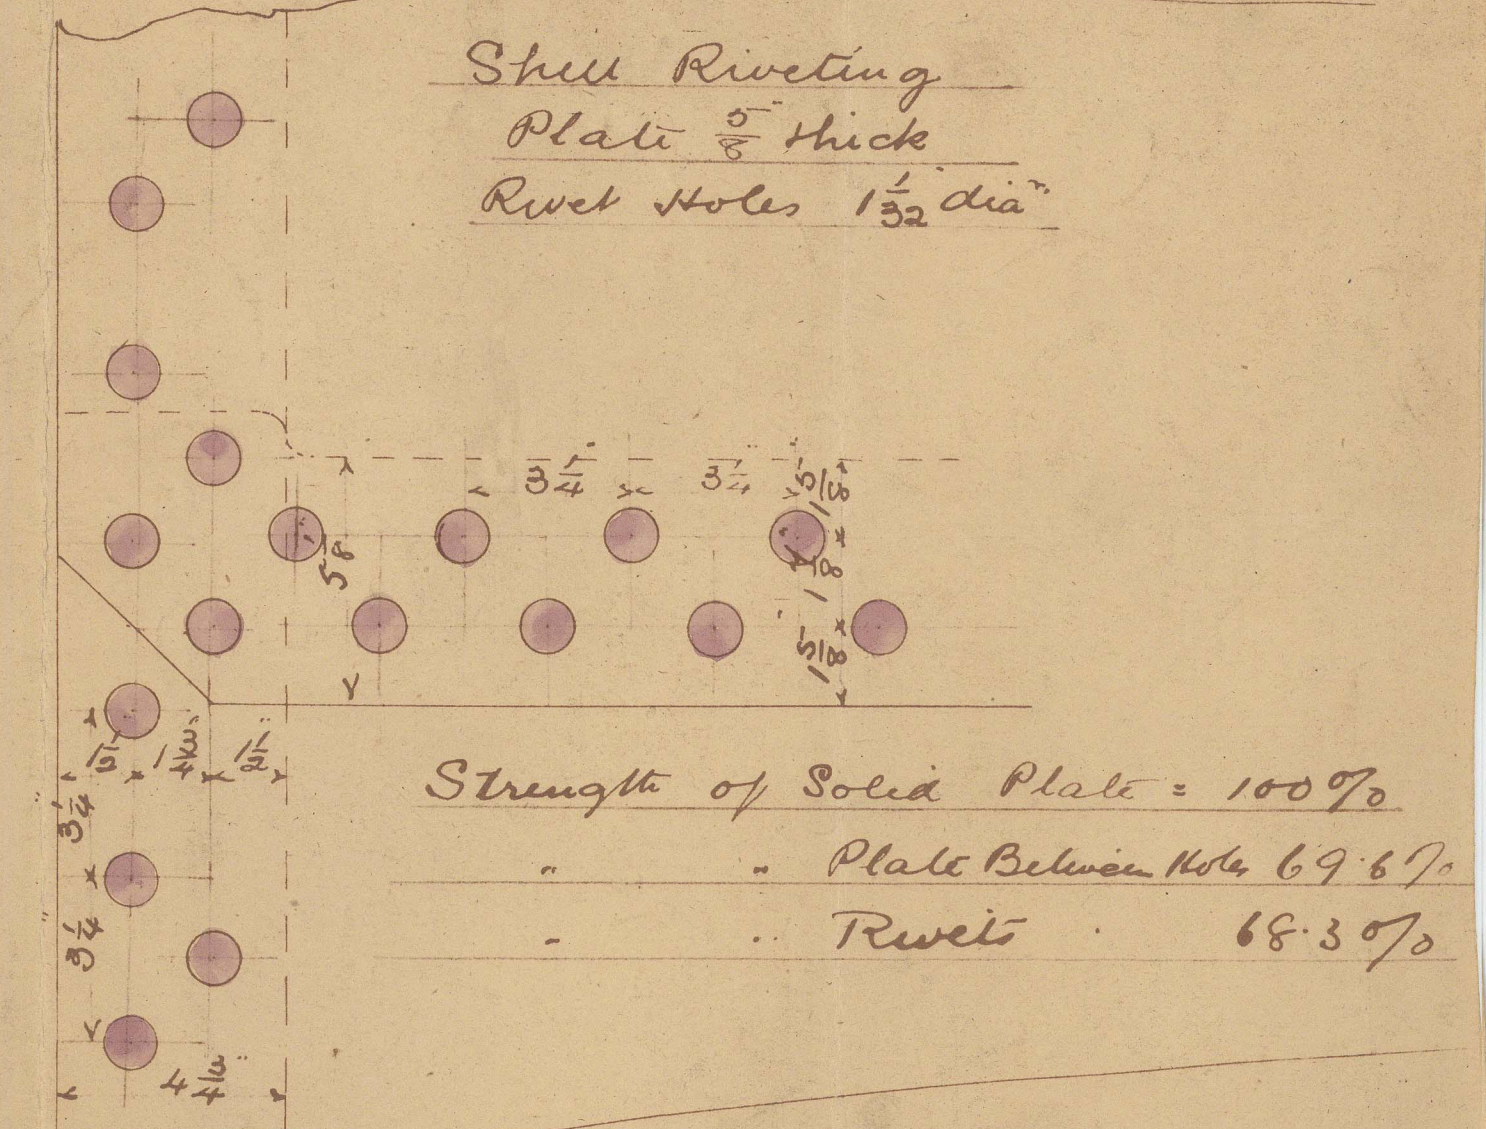 Shell Riveting
Plate 5/8" thick
Rivet Holes 1 1/32" dia
3 1/4"
3 1/4"
1 5/8"
5 1/8"
1 7/8"
1 5/8"
1 1/2"
1 3/4"
1 1/2"
3 1/4"
3 1/4"
4 3/4"
Strength of Solid Plate = 100%
" " Plate Between Holes 69.6%
" " Rivets 68.3%